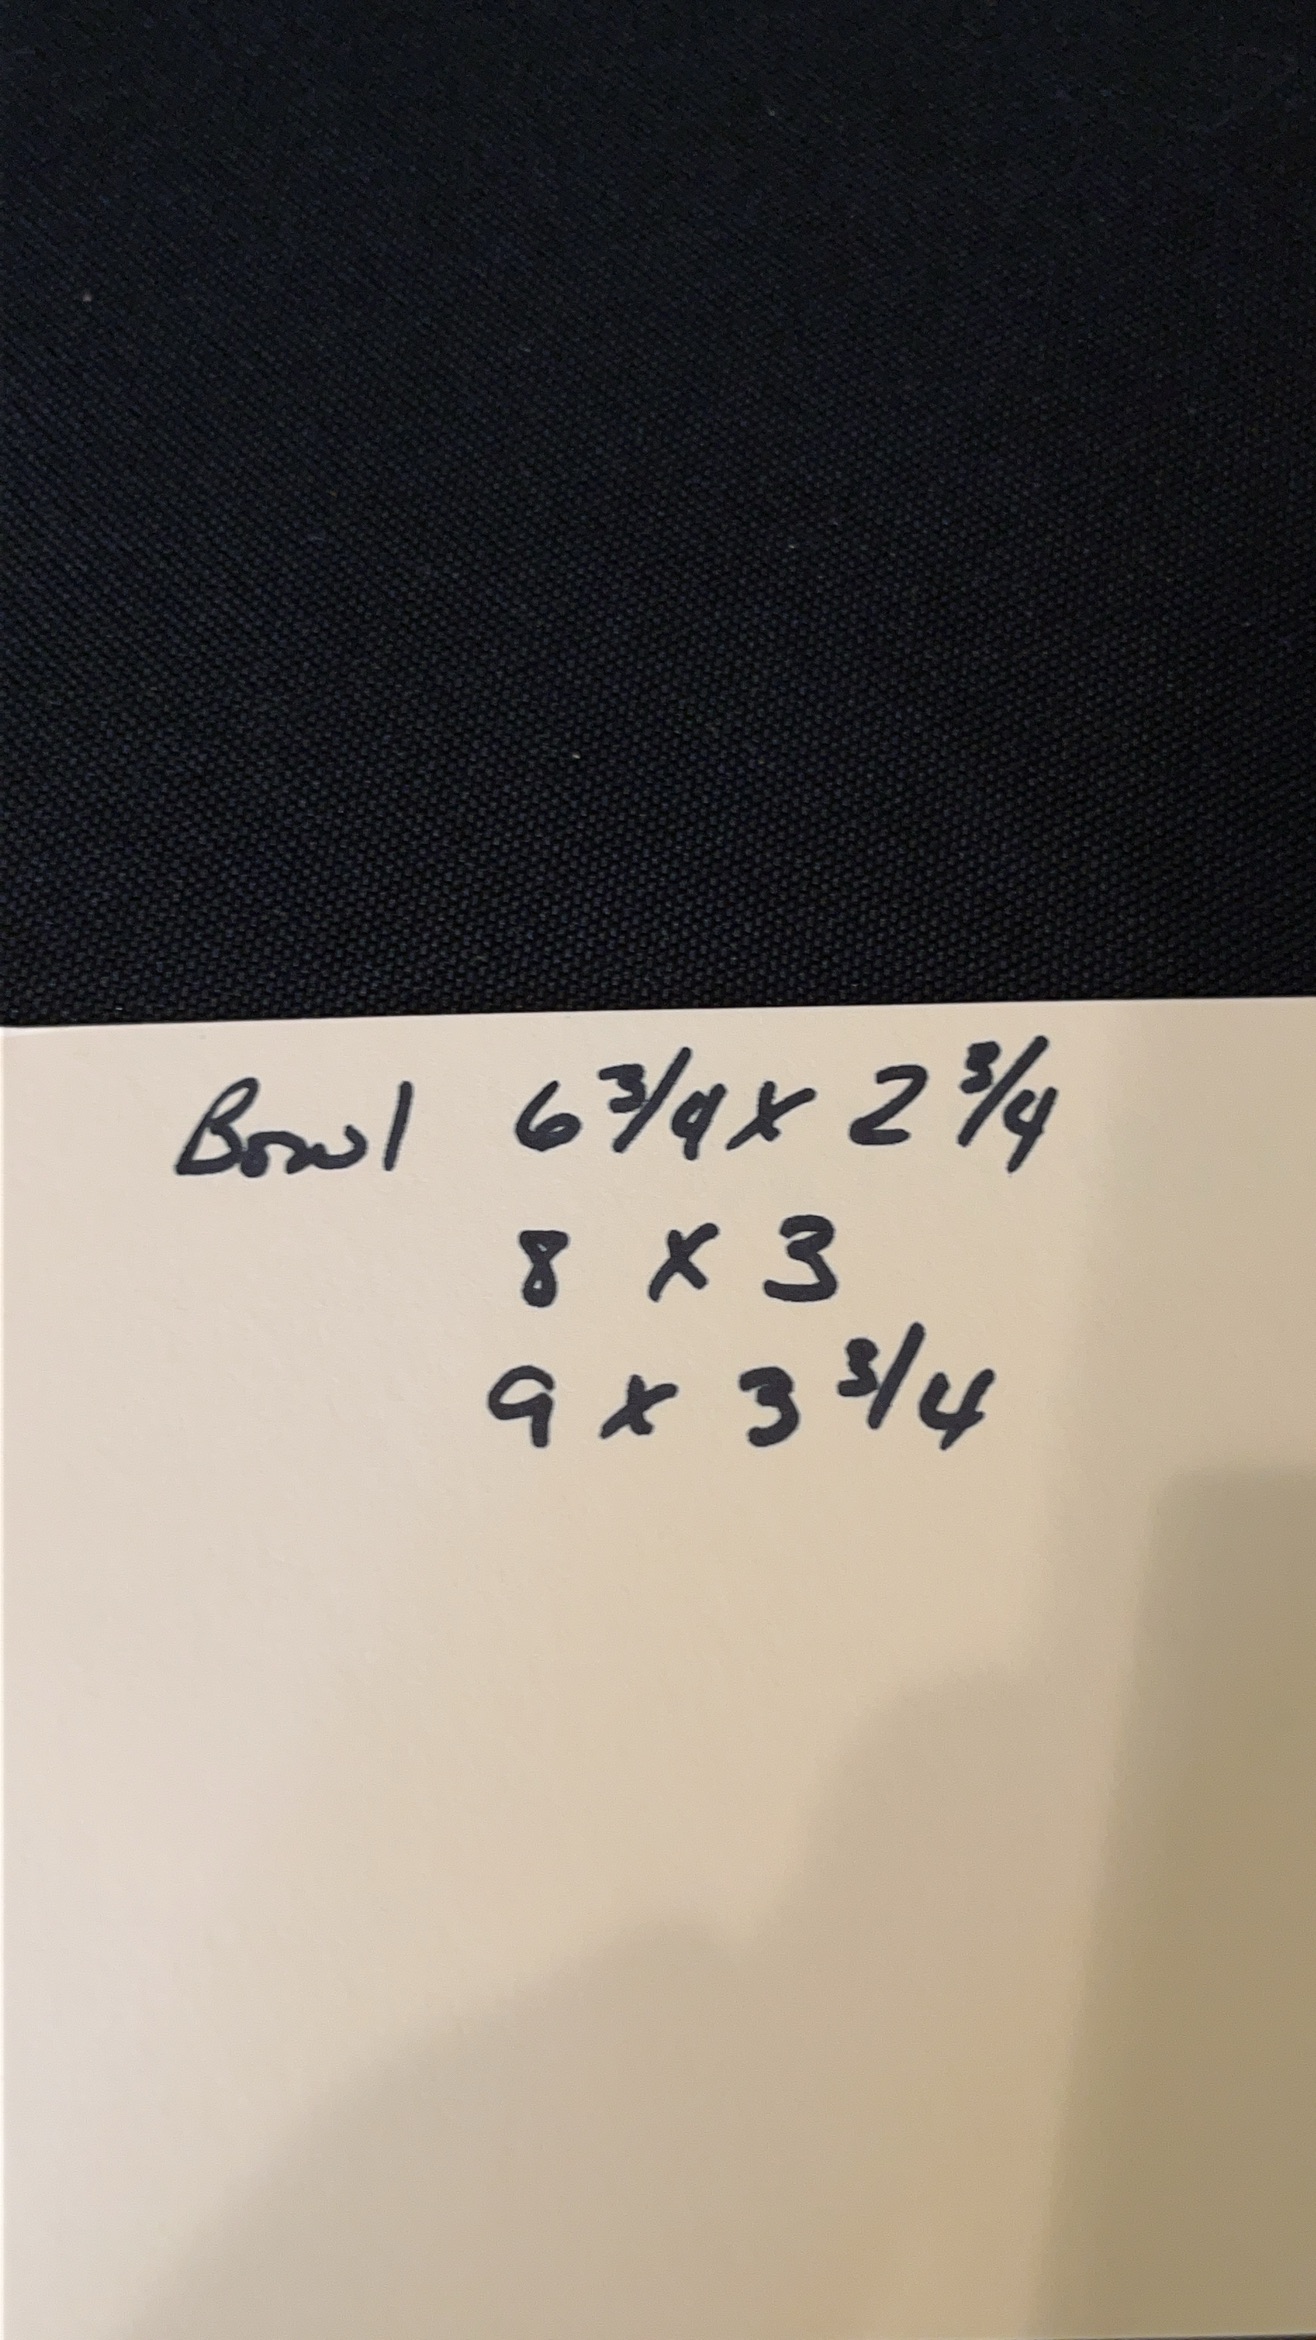 Bowl 6 3/4 x 2 3/4
8 x 3
9 x 3 3/4